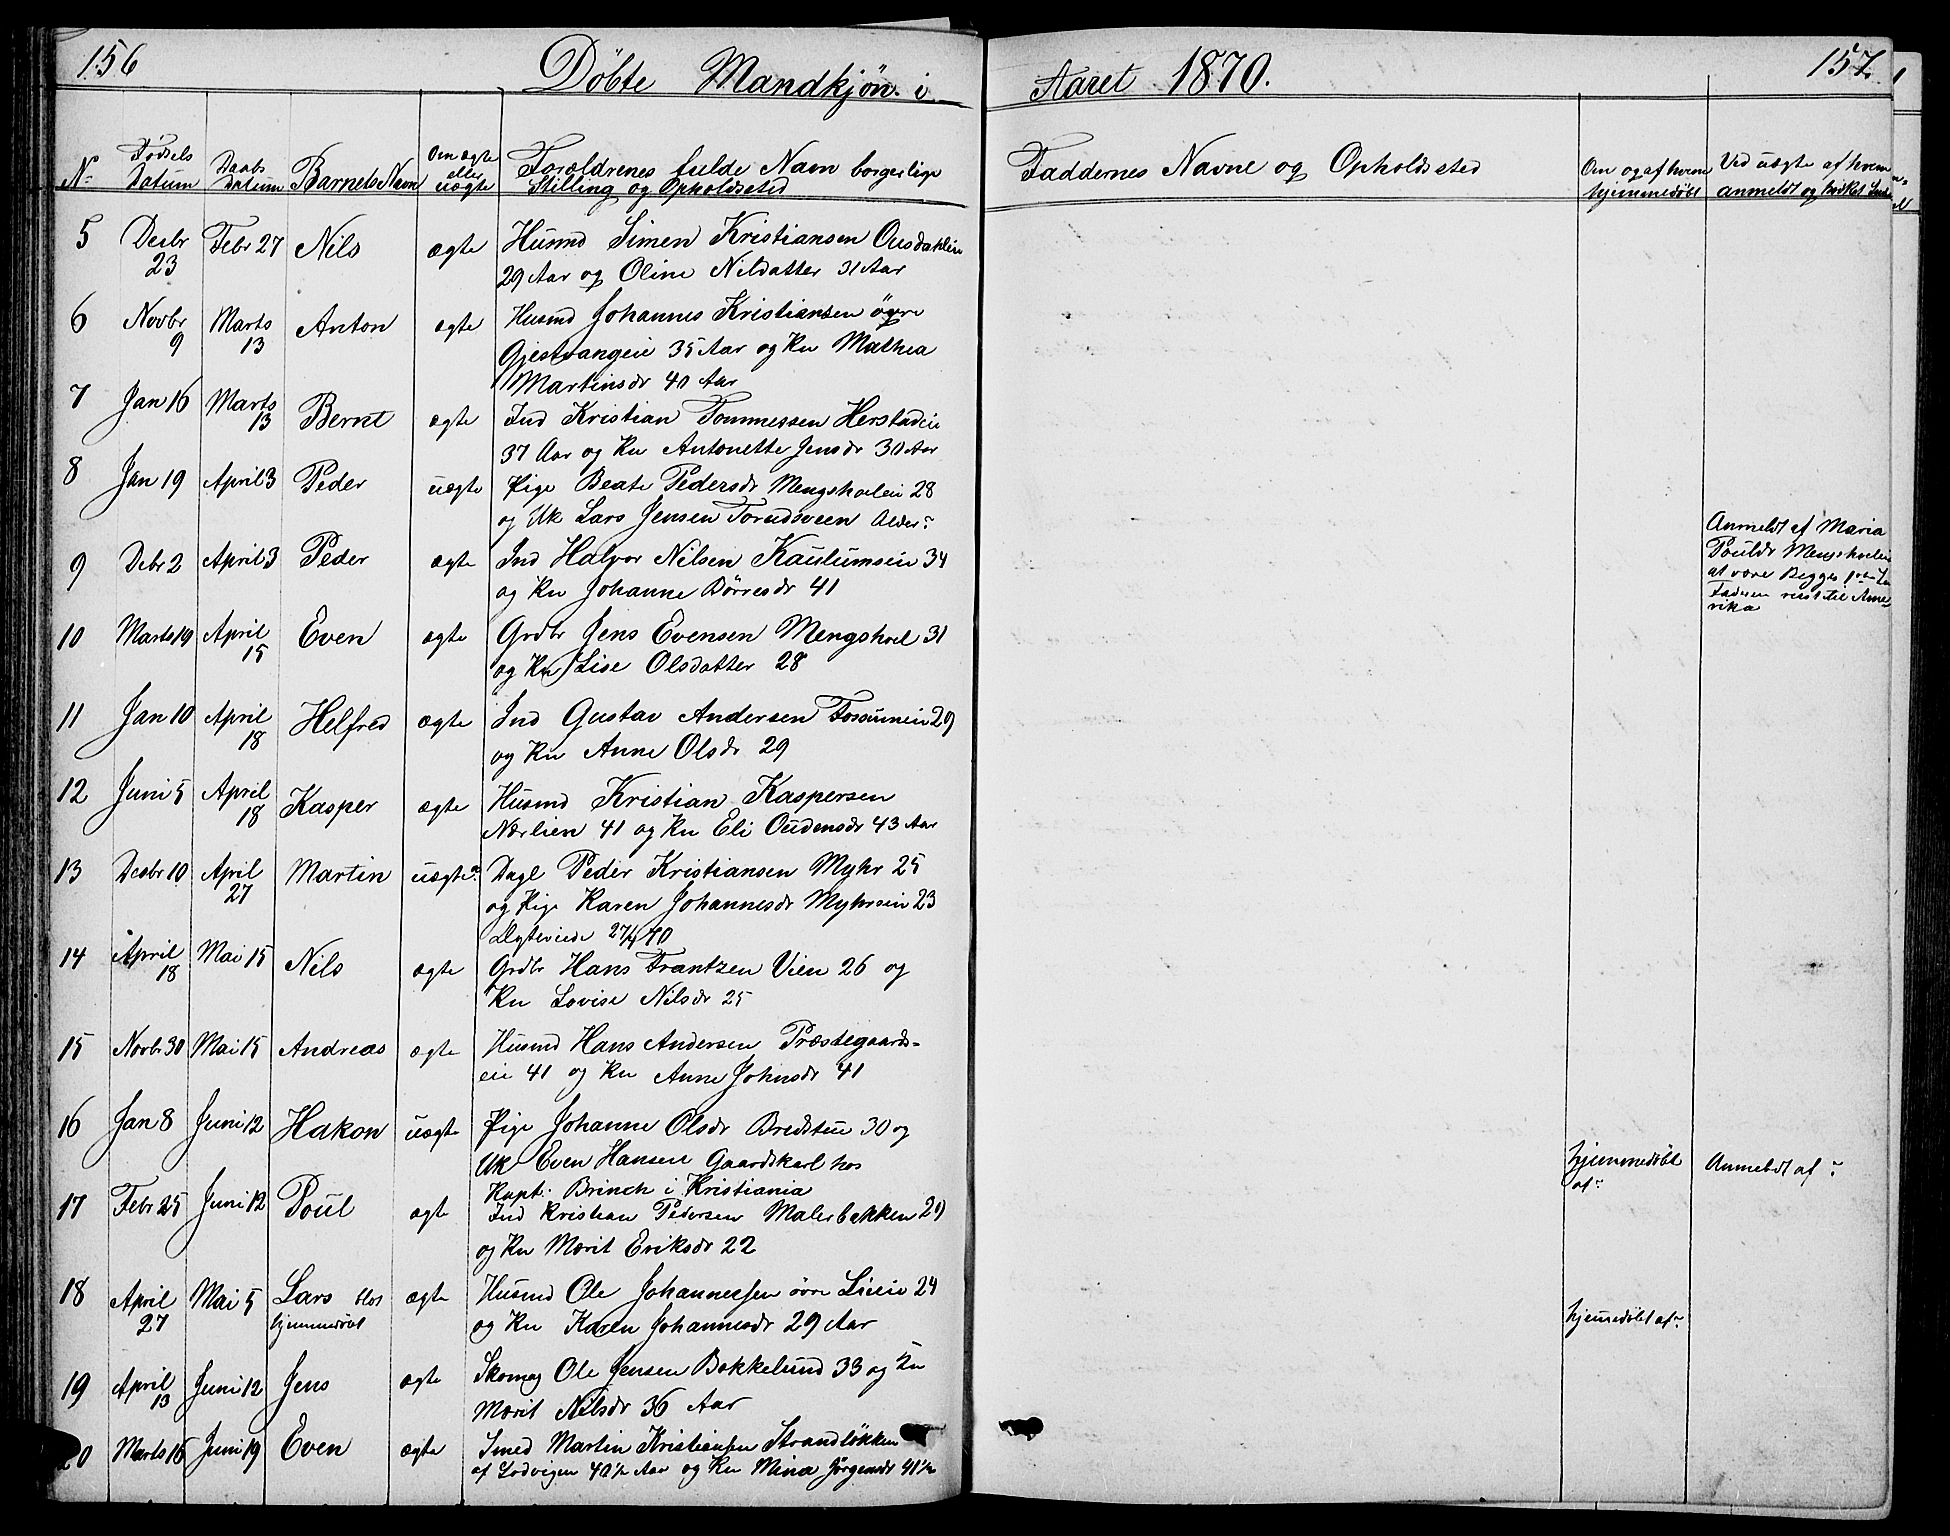 156
Döbte Mandkjön i
Aaret 1870.
157
No Födsels Datum Daabs Datum Barnets Navn Om ægte eller uægte Forældrenes fulde Navn borgerlige Stilling og Opholdssted
Faddernes Navne og Opholdssted Om og af hvem hjemmedöbt Ved uægte af hvem anmeldt og hvilket
5 Decbr 23 Febr 27 Nils ægte Husmd Simen Kristiansen Ousdahleie
29 Aar og Oline Nilsdatter 31 Aar
6 Novbr 9 Marts 13 Anton ægte Husmd Johannes Kristiansen övre
Gjestvangeie 35 Aar og Ku Mathea
Martinsdr 40 Aar
7 Jan 16 Marts 13 Bernt ægte Ind Kristian Tommessen Herstadeie
37 Aar og Ku Antonette Jensdr 30 Aar
8 Jan 19 April 3 Peder uægte Pige Beate Pedersdr Mengshoelei 28
og Uk Lars Jensen Torudsveen Alder?
Anmeldt af Maria
Pouldr Mengshoeleie
at være Begges 1ste
Faderen reist til Ame-
rika
9 Debr 2 April 3 Peder ægte Ind Halvor Nilsen Kaulumseie 34
og Ku Johanne Börresdr 41
10 Marts 19 April 15 Even ægte Grdbr Jens Evensen Mengshoel 31
og Ku Lise Olsdatter 28
11 Jan 10 April 18 Helfred ægte Ind Gustav Andersen Fossumeie 29
og Ku Anne Olsdr 29
12 Juni 5 April 18 Kasper ægte Husmd Kristian Kaspersen
Nærlien 41 og Ku Eli Oudensdr 43 Aar
13 Decbr 10 April 27 Martin uægte? Dagl Peder Kristiansen Myhr 25
og Pige Karen Johannesdr Myhrseie 23
Ægteviede 27/4 70
14 April 18 Mai 15 Nils ægte Grdbr Hans Frantzen Vien 26 og
Ku Lovise Nilsdr 25
15 Novbr 30 Mai 15 Andreas ægte Husmd Hans Andersen Præstegaards-
eie 41 og Ku Anne Johnsdr 41
16 Jan 8 Juni 12 Hakon uægte Pige Johanne Olsdr Bredstue 30 og
Uk Even Hansen Gaardskarl hos
Kapt. Brinch i Kristiania
hjemmedöbt af? Anmeldt af ?
17 Febr 25 Juni 12 Poul ægte Ind Kristian Pedersen Malerbakken 29
og Ku Marit Eriksdr 22
18 April 27 Mai 5 Lars blot hjemmedöbt ægte Husmd Ole Johannessen övre Lieie 24
og Ku Karen Johannesdr 29 Aar
hjemedöbt af?
19 April 13 Juni 12 Jens ægte Skomag Ole Jensen Bakkelund 33 og Ku
Marit Nilsdr 36 Aar
20 Marts 16 Juni 19 Even ægte Smed Martin Kristiansen Strandlökken
af Lodvigen 40½ Aar og Ku Mina Jörgensdr 41½